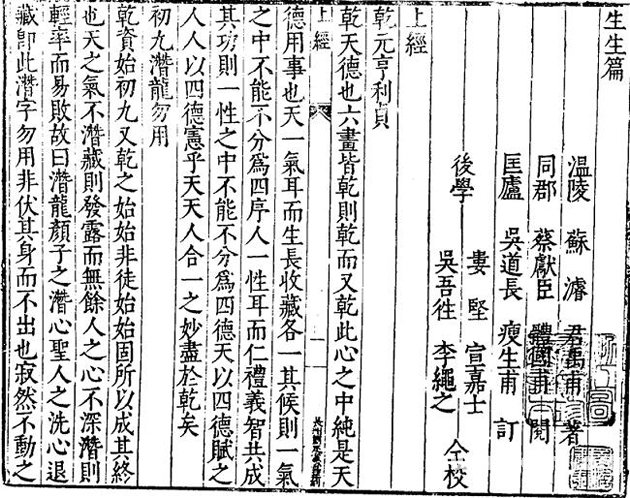 生生篇
溫陵 蘇濬 君禹甫 著
同郡 蔡獻臣 體國甫 閱
匡廬 吳道長 瘦生甫 訂
婁堅 宣嘉士
後學 仝校
吳吾徃 李繩之
上經
乾元亨利貞
乾天德也六畫皆乾則乾而又乾此心之中純是天
上經
一
德用事也天一氣耳而生長收藏各一其候則一氣
之中不能不分爲四序人一性耳而仁禮義智共成
其功則一性之中不能不分爲四德天以四德賦之
人人以四德憲乎天天人合一之妙盡於乾矣
初九潛龍勿用
乾資始初九又乾之始始非徒始始固所以成其終
也天之氣不潛藏則發露而無餘人之心不深潛則
輕率而易敗故曰潛龍顏子之潛心聖人之洗心退
藏卽此潛字勿用非伏其身而不出也寂然不動之